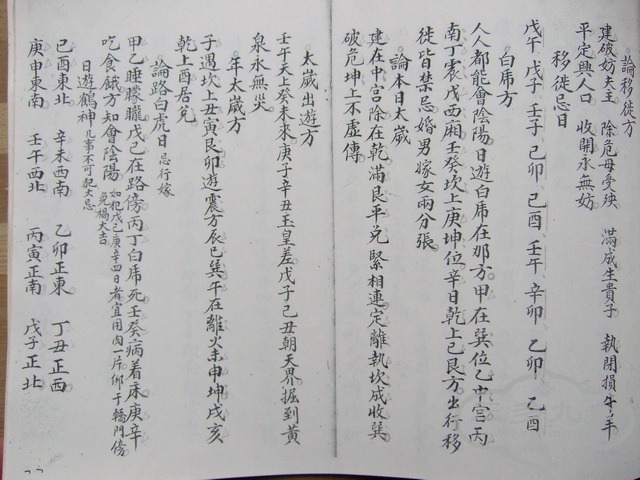 論移徙方
建破妨夫主　除危母受殃　滿成生貴子　執閉損牛羊
平定興人口　收開永無妨
移徙忌日
戊午 戊子 壬子 己卯 己酉 壬午 辛卯 乙卯 己酉
白席方
人人都能會陰陽日遊白席在那方甲在巽位乙中宮丙
南丁震戊西廂壬癸坎上庚坤位辛日乾上己艮方出行移
徙皆禁忌婚男嫁女兩分張
論本日太歲
建在中宮除在乾滿艮平兌緊相連定離執坎成收巽
破危坤上不虛傳
太歲出遊方
壬午天上癸未來庚子辛丑玉皇差戊子己丑朝天界掘到黃
泉永無災
年太歲方
子遇坎上丑寅艮卯遊震方辰巳巽午在離火未申坤戌亥
乾上酉居兌
論路白虎日忌行嫁
甲乙睡矇矓戊己在路傍丙丁白席死壬癸病着床庚辛
吃食餓方知會陰陽如犯戊己庚辛四日者宜用肉一片綁于轎門傍
免禍大吉
日遊鶴神凡事不可犯大忌
己酉東北　辛未西南　乙卯正東　丁丑正西
庚申東南　壬午西北　丙寅正南　戊子正北